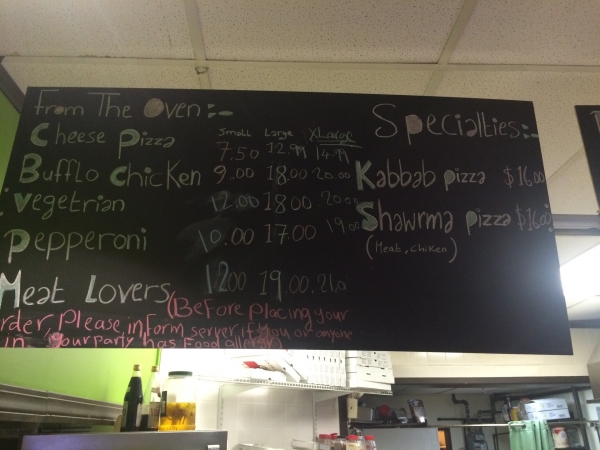 From The Oven:-
Small Large XLarge
Cheese Pizza 7.50 12.99 14.99
Bufflo chicken 9.00 18.00 20.00
Vegetrian 12.00 18.00 20.00
Pepperoni 10.00 17.00 19.00
Meat Lovers 12.00 19.00
(Before placing your
order, Please inform server if you or anyone
in your party has Food allergy)
Specialties:-
Kabbab pizza $16.00
Shawrma pizza $16.00
(Meat, chiken)